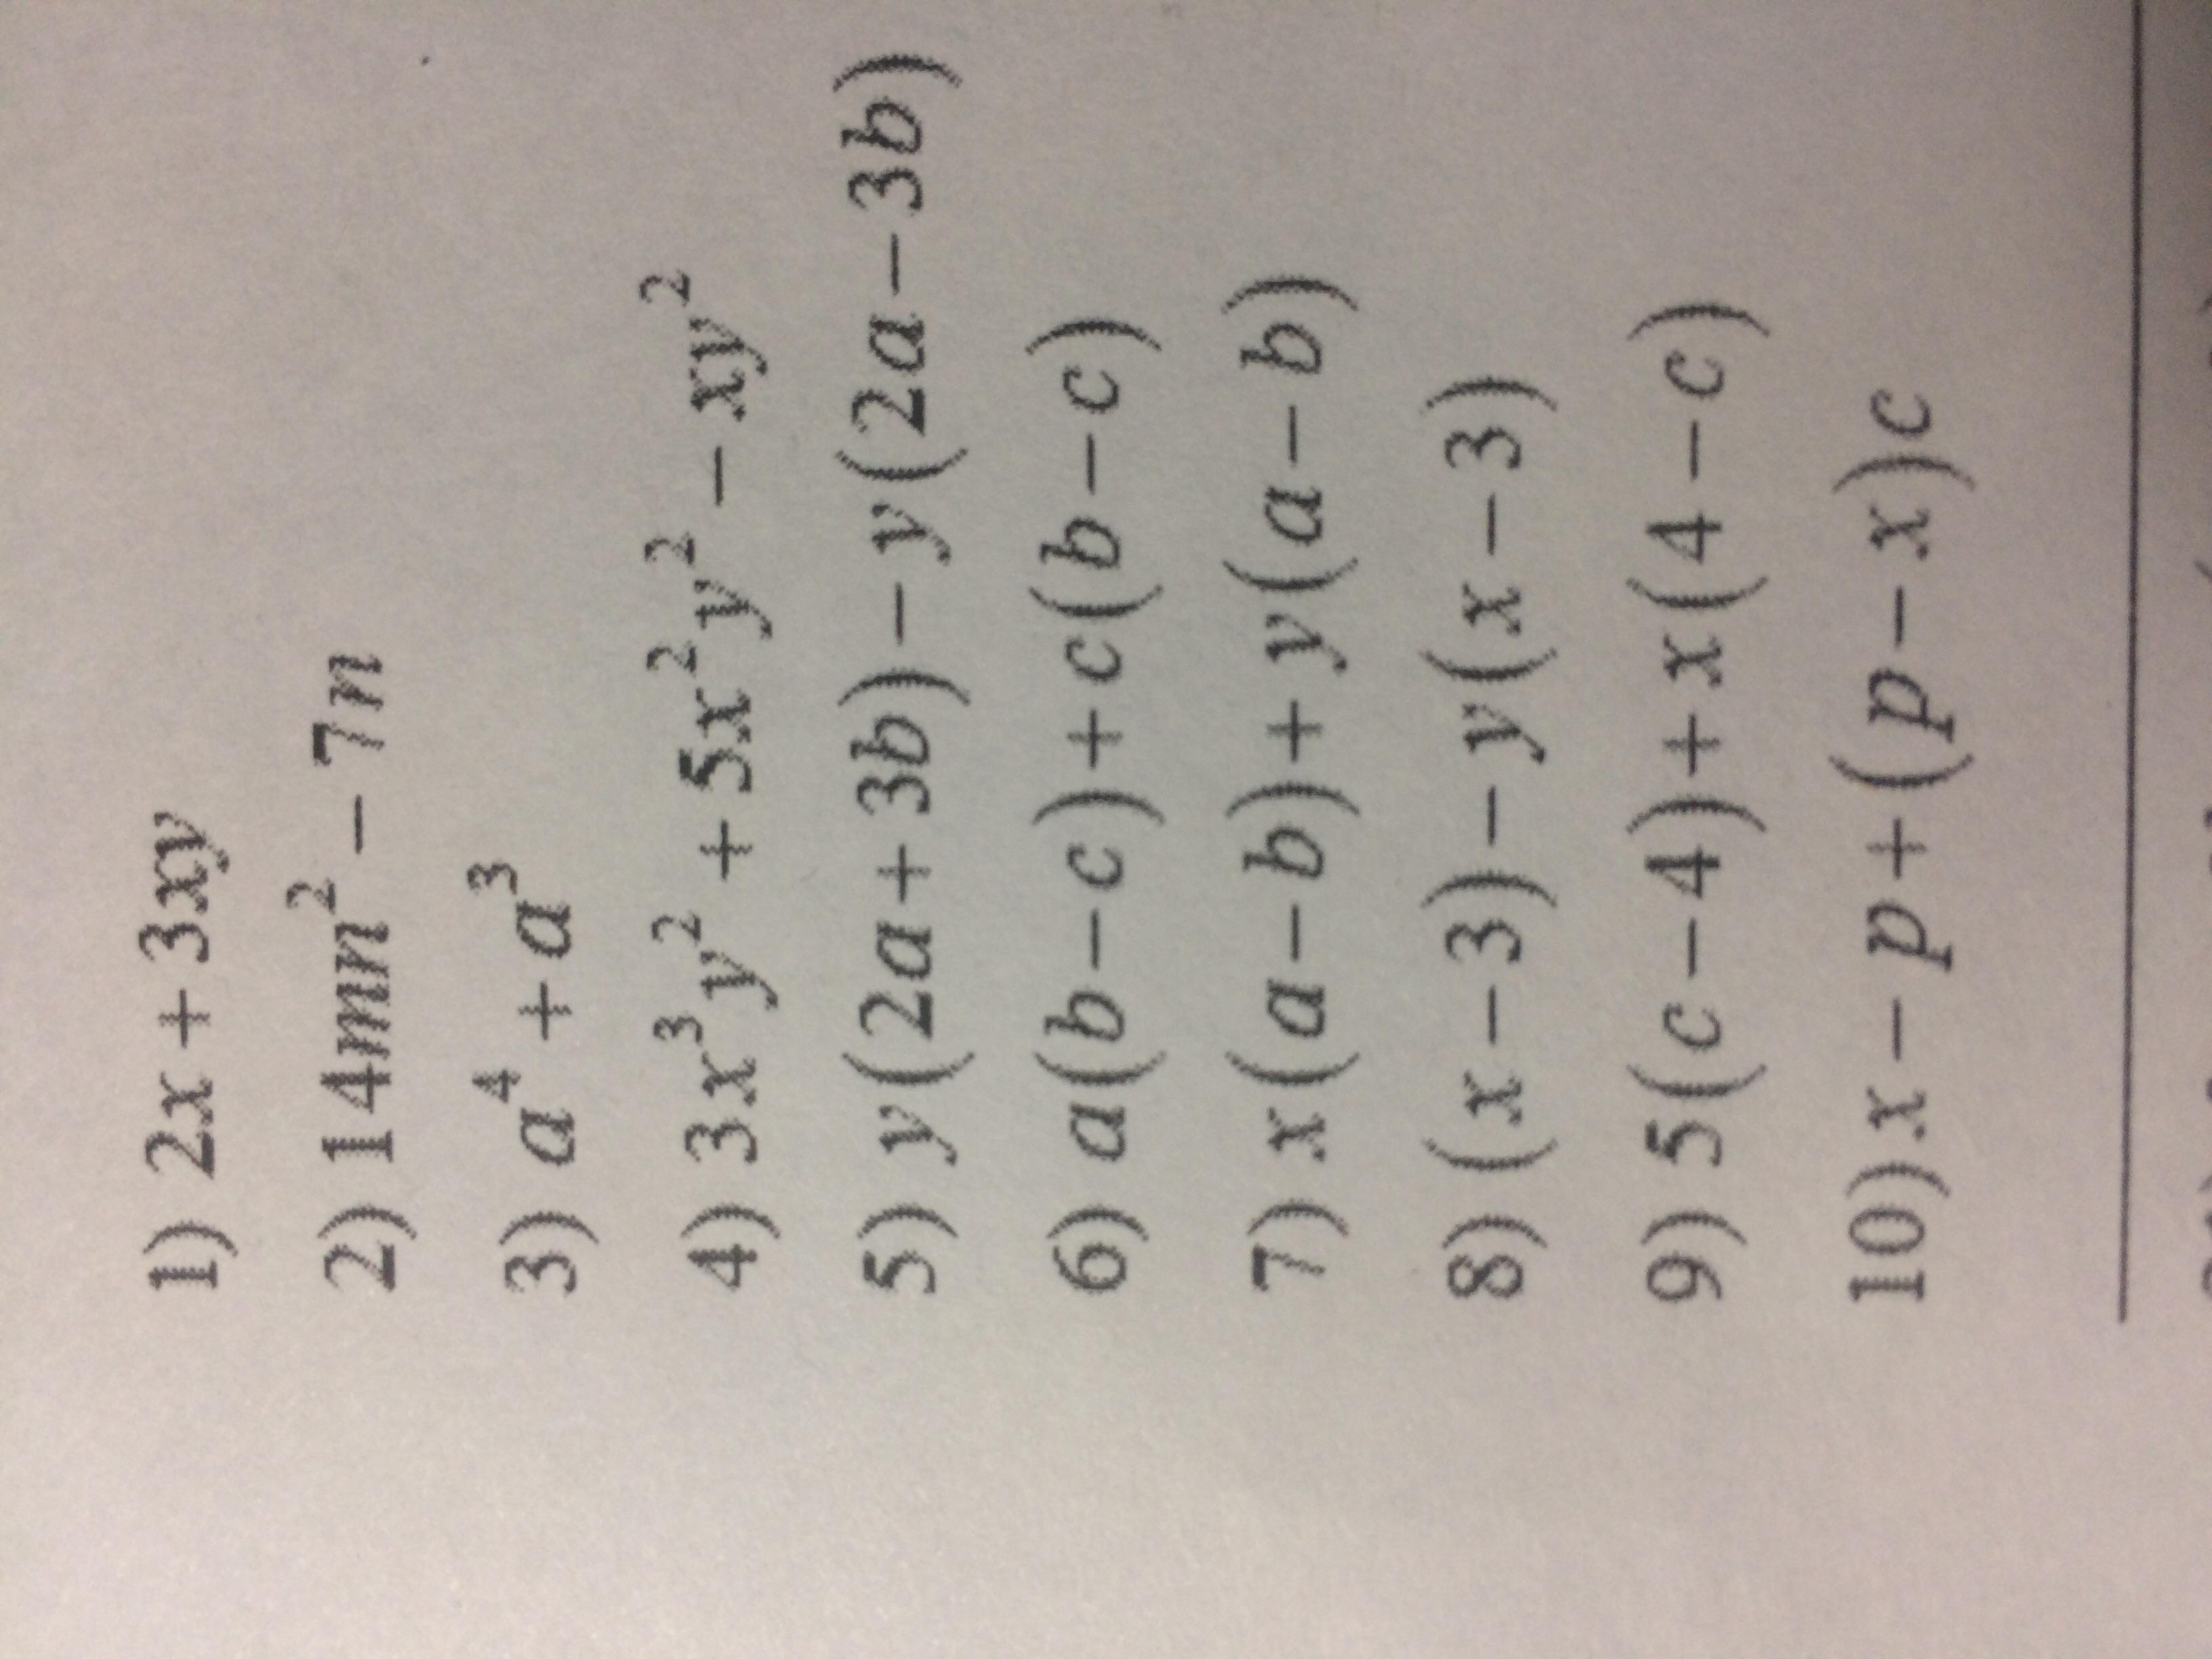 1) 2x + 3xy
2) 14mn² − 7n
3) a⁴ + a³
4) 3x³y² + 5x²y² − xy²
5) y(2a + 3b) − y(2a − 3b)
6) a(b − c) + c(b − c)
7) x(a − b) + y(a − b)
8) (x − 3) − y(x − 3)
9) 5(c − 4) + x(4 − c)
10) x − p + (p − x)c